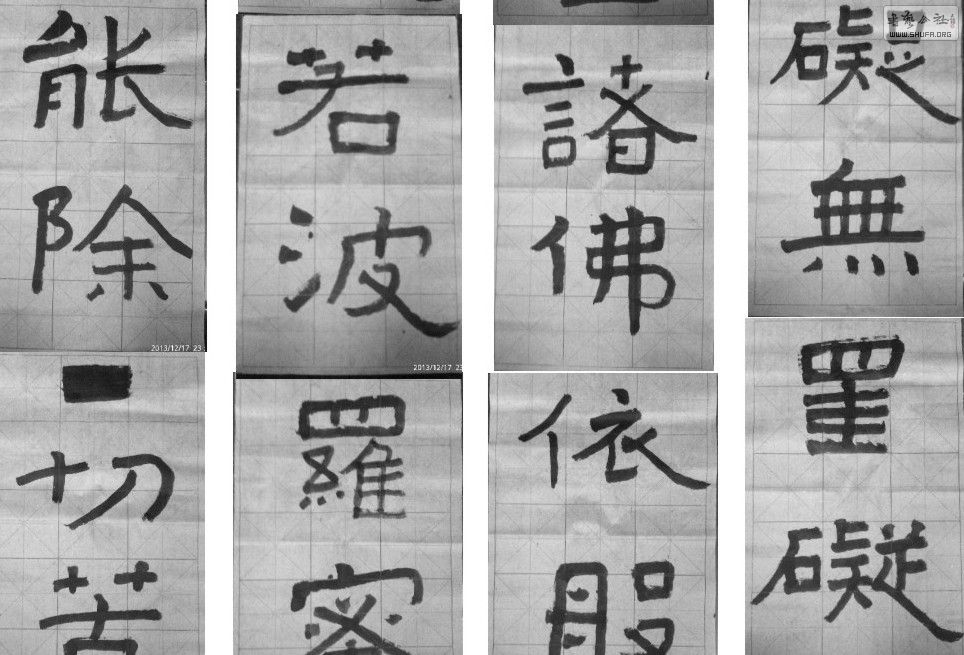 礙無罣礙
諸佛依般
若波羅蜜
能除一切苦
书艺公社
WWW.SHUFA.ORG
2013/12/17 23
2013/12/17 23